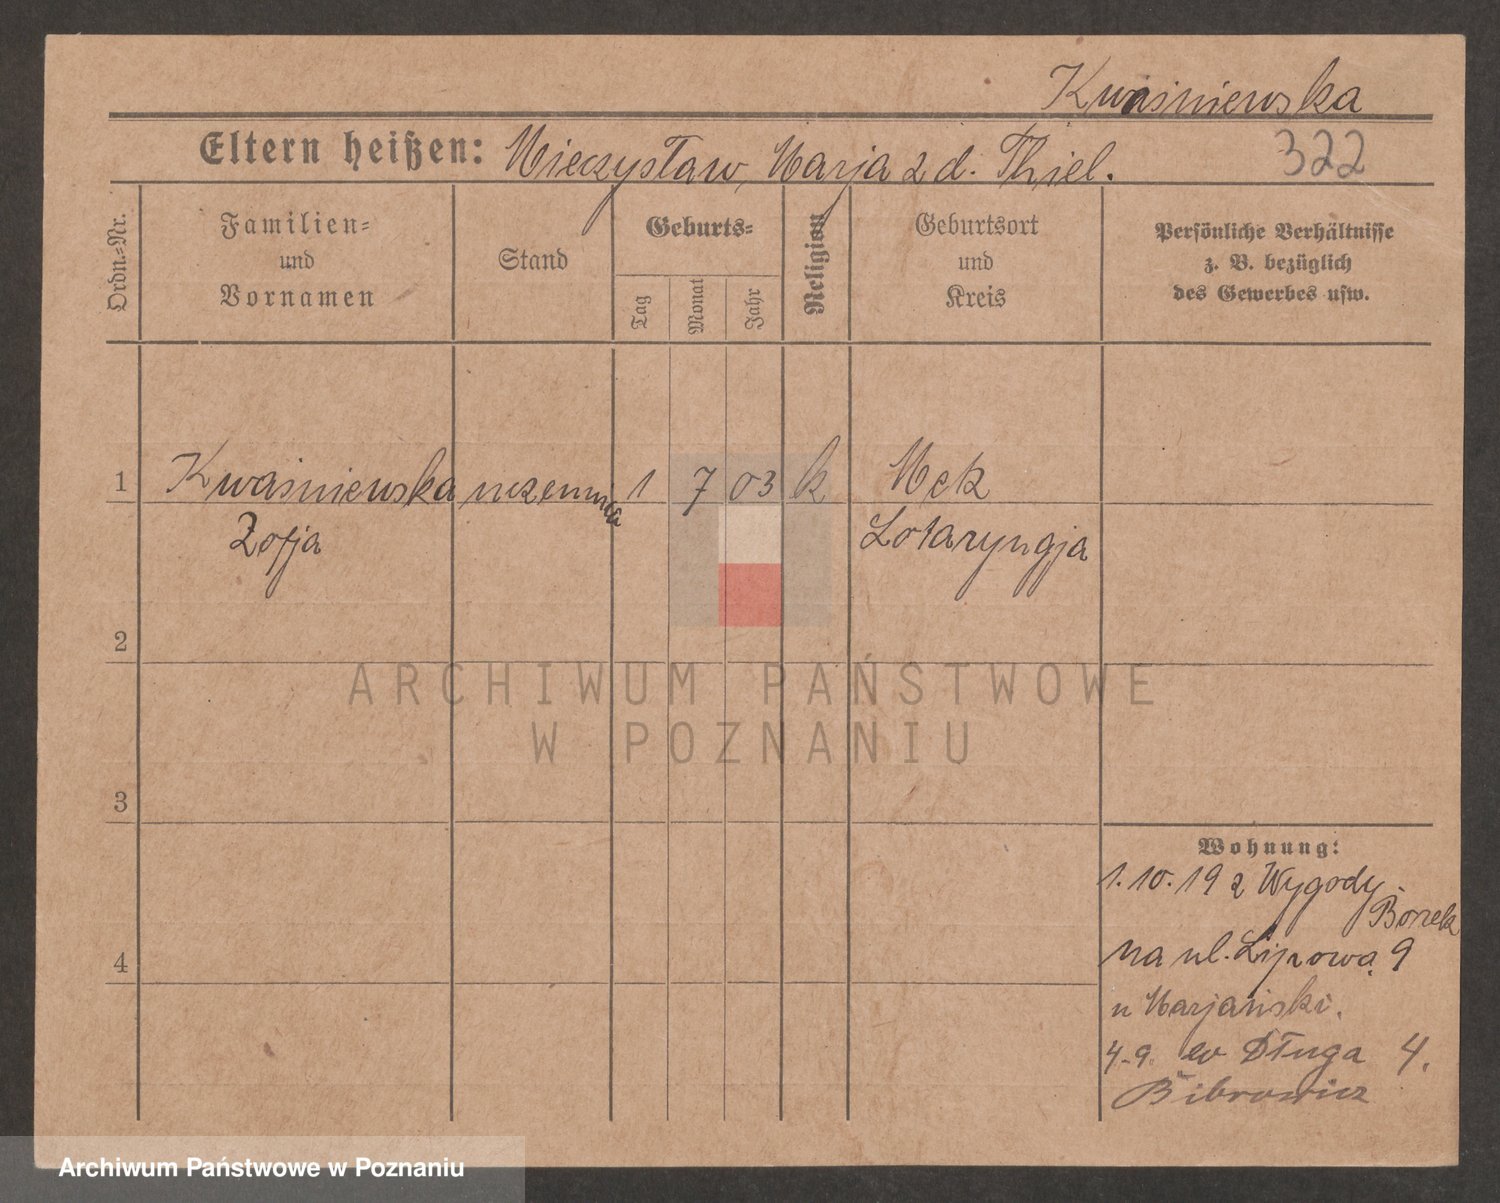 Kwaśniewska
Eltern heißen: Mieczysław, Marja z d. Thiel.
322
Ordn.=Nr.
Familien=
und
Vornamen
Stand
Geburts=
Tag
Monat
Jahr
Religion
Geburtsort
und
Kreis
Persönliche Verhältnisse
z. B. bezüglich
des Gewerbes usw.
1 Kwaśniewska uczennica 1 7 03 k Metz
Zofja Lotaryngja
2
3
4
Wohnung:
1.10.19 z Wygody
Borek
na ul. Lipową 9
u Marjański.
4.9. Długa 4.
Bibrowicz
ARCHIWUM PAŃSTWOWE
W POZNANIU
Archiwum Państwowe w Poznaniu